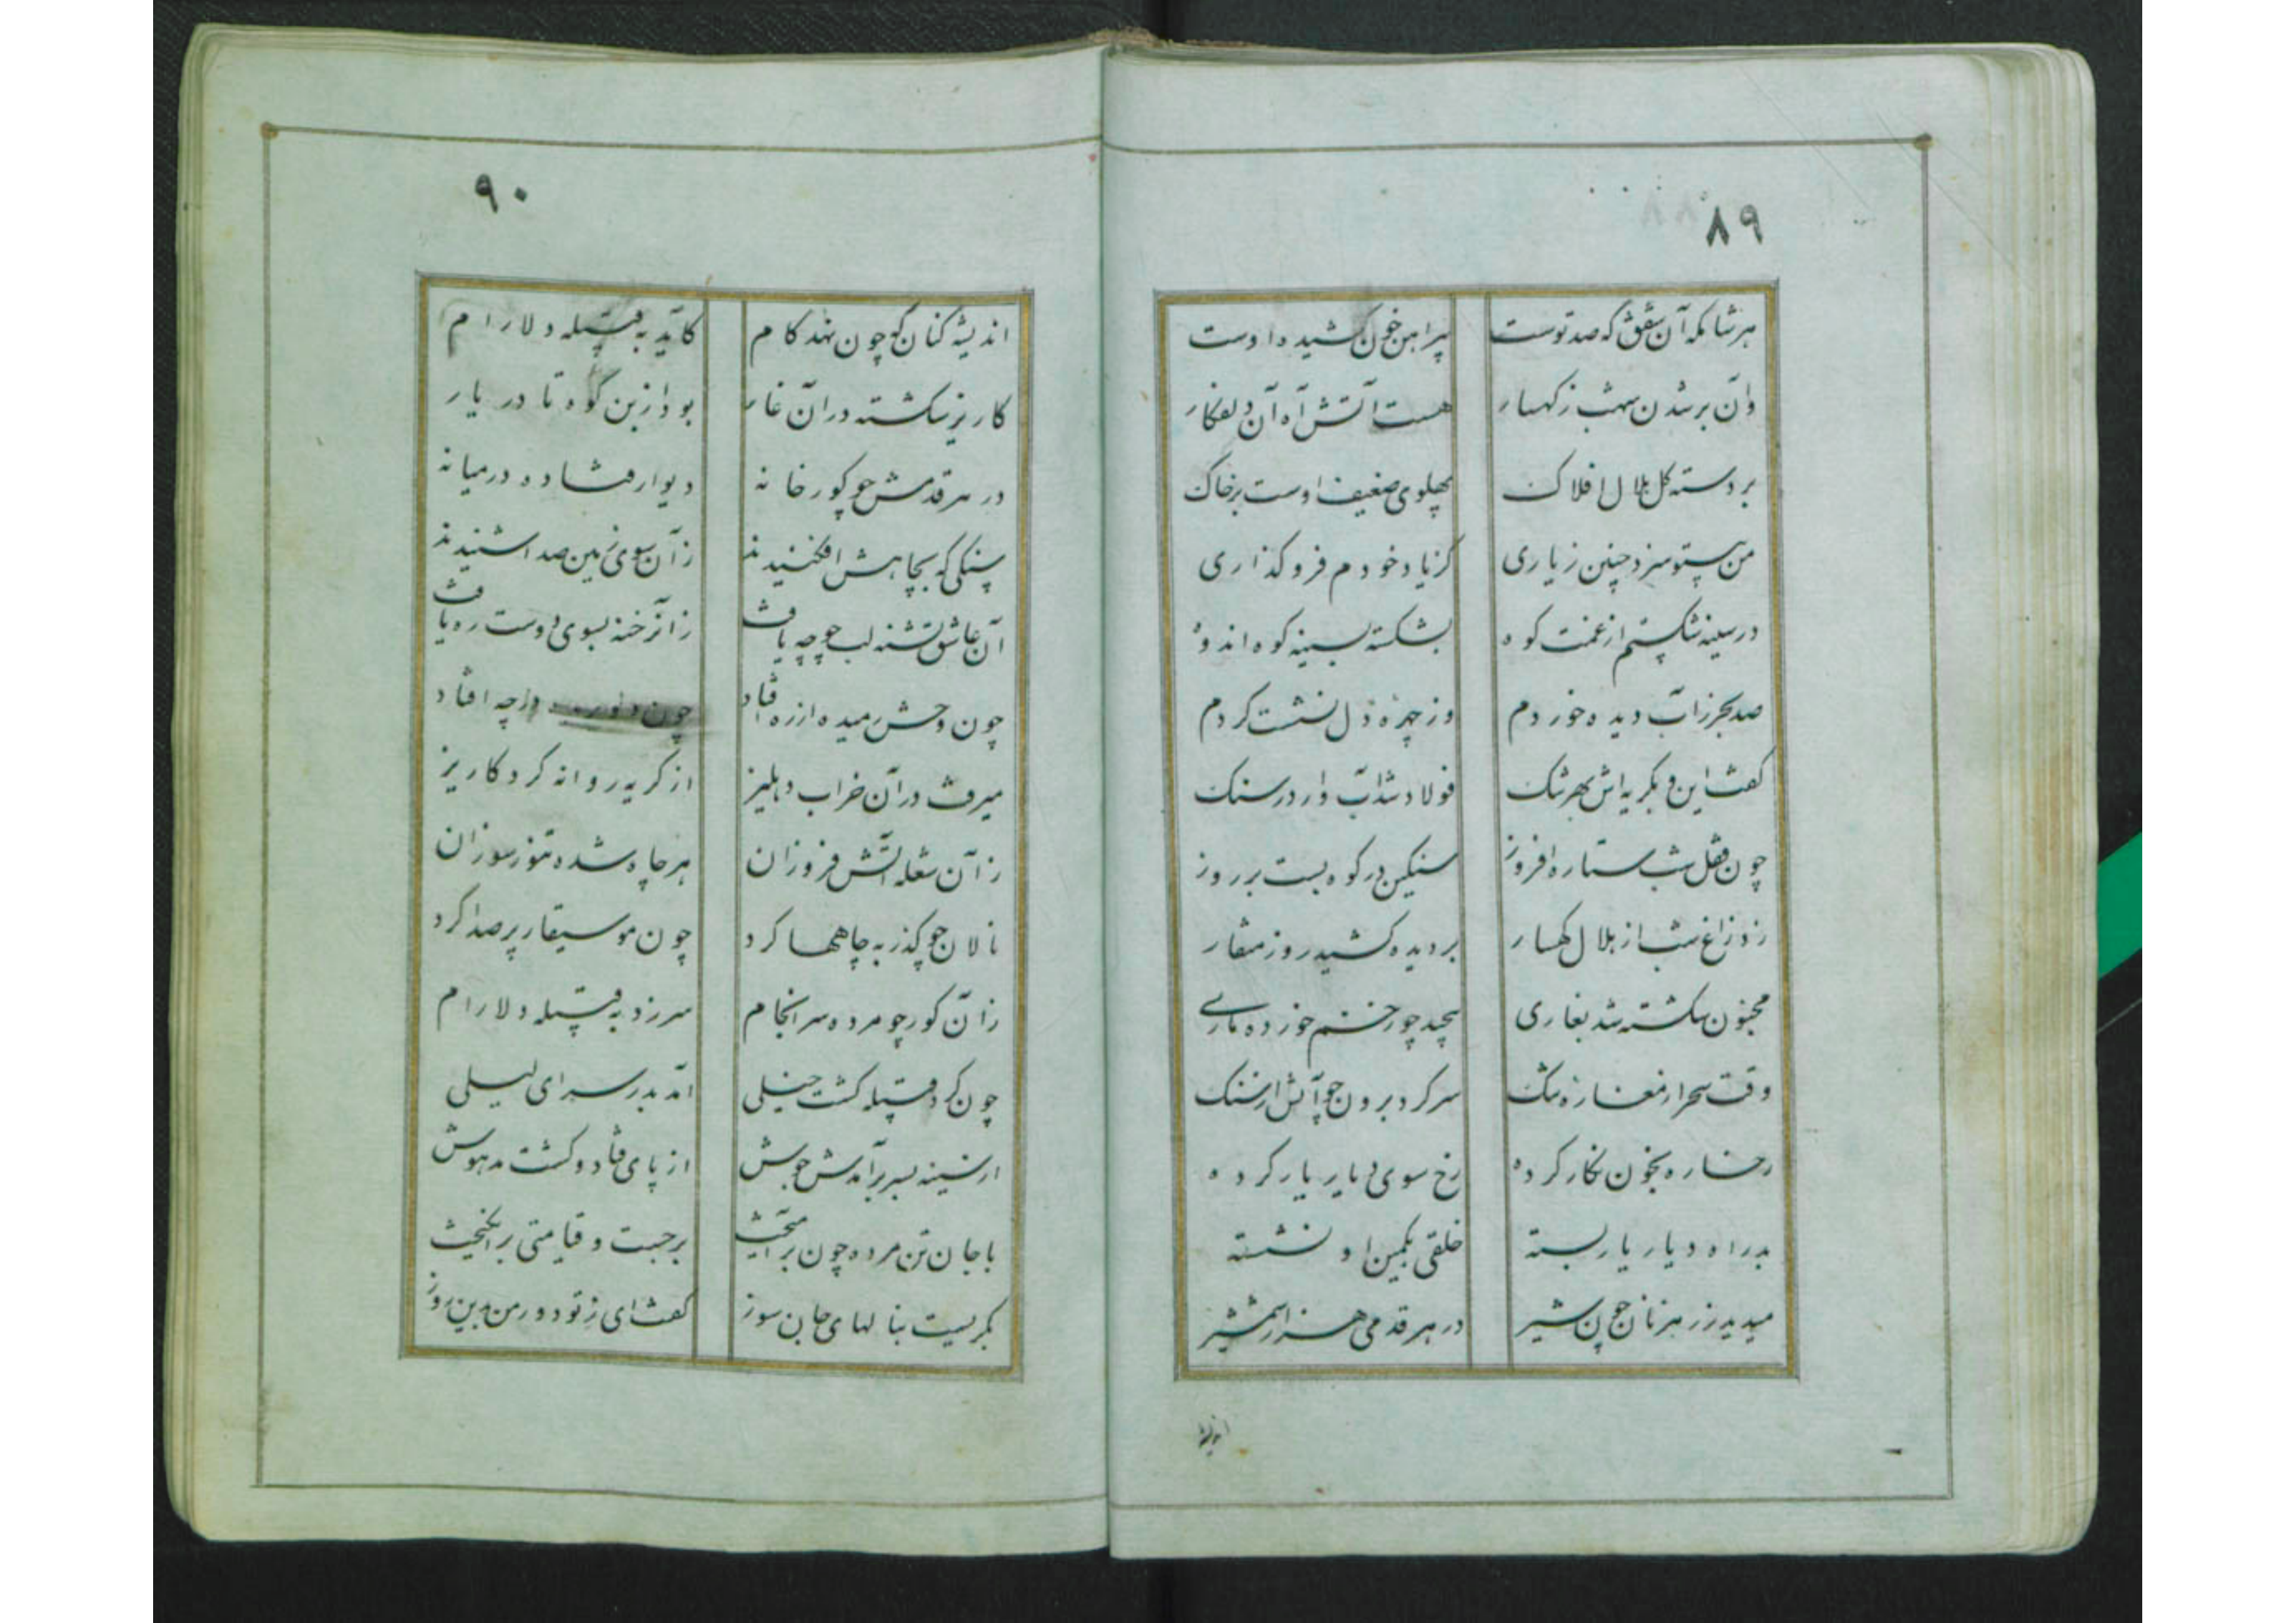 ۸۹
هر شامگه آن شفق که صد توست پیراهن خون کشیدهٔ اوست
وان بر شدن سهیب ز کهسار هست آتش آه آن دلفکار
بر دسته کل هلال افلاک پهلوی ضعیف اوست بر خاک
من بیتو سزد چنین ز یاری کز یاد خودم فرو کذاری
در سینه شکستم از غمت کوه بشکسته بسینه کوه اندوه
صد بحر ز آب دیده خوردم وز چهره دل نشست کردم
کفت این و بکریه اش بهر تنک فولاد شد آب وار در سنک
چون قفل شب ستاره افروز سنکین در کوه بست بر روز
زد زاغ شب از هلال کهسار بر دیده کشید روز منقار
مجنون شکسته شد بغاری پیچید چو زخم خورده ماری
وقت سحر از مغاره تنک سر کرد برون چو آتش از سنک
رخساره بخون نکار کرده رخ سوی دیار یار کرده
بد راه دیار یار بسته خلقی بکمین او نشسته
میدید ز رهزنان چون شیر در هر قدمی هزار شمشیر
اندیشه
۹۰
اندیشه کنان که چون نهد کام کاید به قبیله دلارام
کاریز شکسته در آن غار بود از بن کوه تا در یار
در هر قدمش چو کور خانه دیوار فتاده در میانه
سنکی که بچاهش افکنیدند ز آن سوی زمین صدا شنیدند
آن عاشق تشنه لب چو چه یافت زان رخنه بسوی دوست ره یافت
چون وحش رمیده از ره افتاد چون در چه افتاد
میرفت در آن خراب دهلیز از کریه روانه کرد کاریز
ز آن شعله آتش فروزان هر چاه شده تنور سوزان
نالان چو کذر به چاهها کرد چون موسیقار پر صدا کرد
زان کور چو مرده سرانجام سر زد به قبیله دلارام
چون کرد قبیله کشت خیلی آمد بدر سرای لیلی
از سینه بسر بر آمدش جوش از پای فتاد و کشت مدهوش
با جان تن مرده چون بر آمیخت برجست و قیامتی بر انکیخت
بکریست بنالهای جان سوز کفت ای ز تو دور من بدین روز